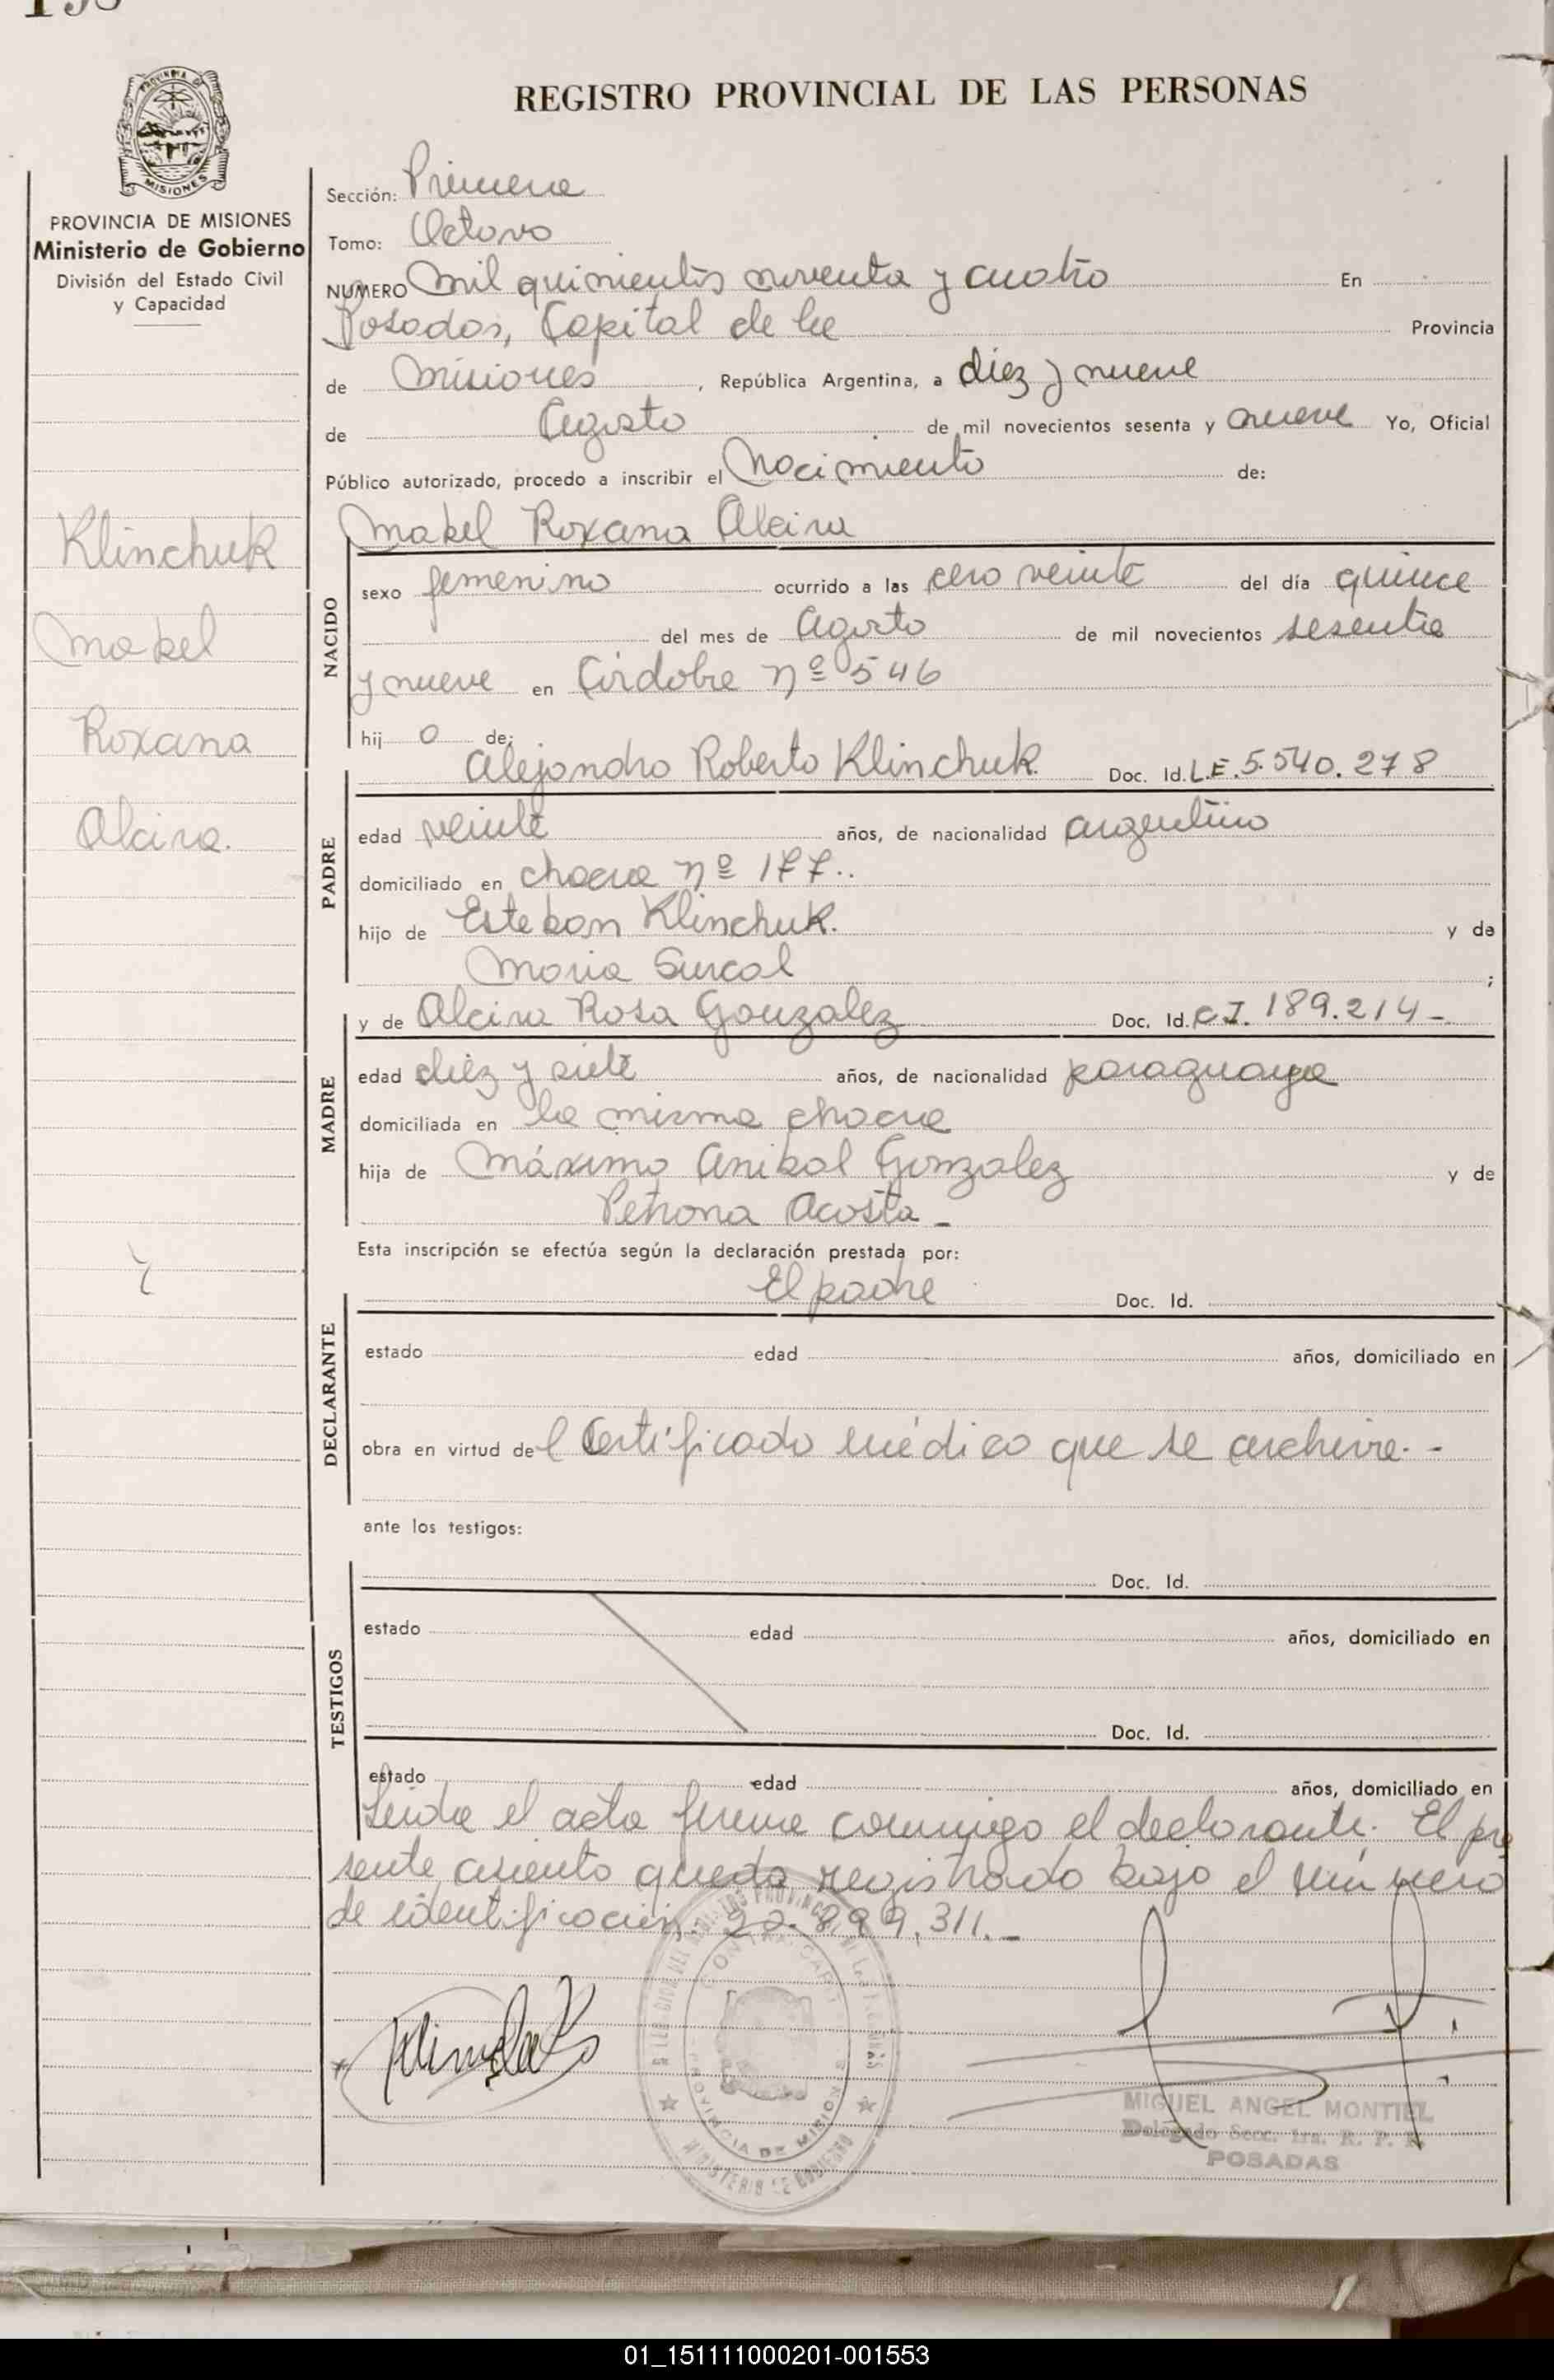 REGISTRO PROVINCIAL DE LAS PERSONAS
PROVINCIA DE MISIONES
Ministerio de Gobierno
División del Estado Civil
y Capacidad
Klinchuk
Mabel
Roxana
Alcira.
Sección: Primera
Tomo: Octavo
NUMERO Mil quinientos noventa y cuatro En
Posadas, Capital de la Provincia
de Misiones, República Argentina, a diez y nueve
de Agosto de mil novecientos sesenta y nueve Yo, Oficial
Público autorizado, procedo a inscribir el Nacimiento de:
Mabel Roxana Alcira
NACIDO
sexo femenino ocurrido a las cero veinte del día quince
del mes de Agosto de mil novecientos sesenta
y nueve en Córdoba nº 546
hij o de:
Alejandro Roberto Klinchuk Doc. Id. L.E. 5.540.278
PADRE
edad veinte años, de nacionalidad argentino
domiciliado en chacra nº 177..
hijo de Esteban Klinchuk. y de
Maria Surcal ;
y de Alcira Rosa Gonzalez Doc. Id. C.I. 189.214-
MADRE
edad diez y siete años, de nacionalidad paraguaya
domiciliada en la misma chacra
hija de Máximo Anibal Gonzalez y de
Petrona Acosta -
Esta inscripción se efectúa según la declaración prestada por:
El padre Doc. Id.
DECLARANTE
estado edad años, domiciliado en
obra en virtud del Certificado médico que se archiva.-
ante los testigos:
Doc. Id.
TESTIGOS
estado edad años, domiciliado en
Doc. Id.
estado edad años, domiciliado en
Leida el acta firma conmigo el declarante. El pre
sente asiento queda registrado bajo el número
de identificación. 20.899.311.-
MIGUEL ANGEL MONTIEL
Delegado Secc. 1ra. R. P. P.
POSADAS
PROVINCIA DE MISIONES
MINISTERIO DE GOBIERNO
01_151111000201-001553